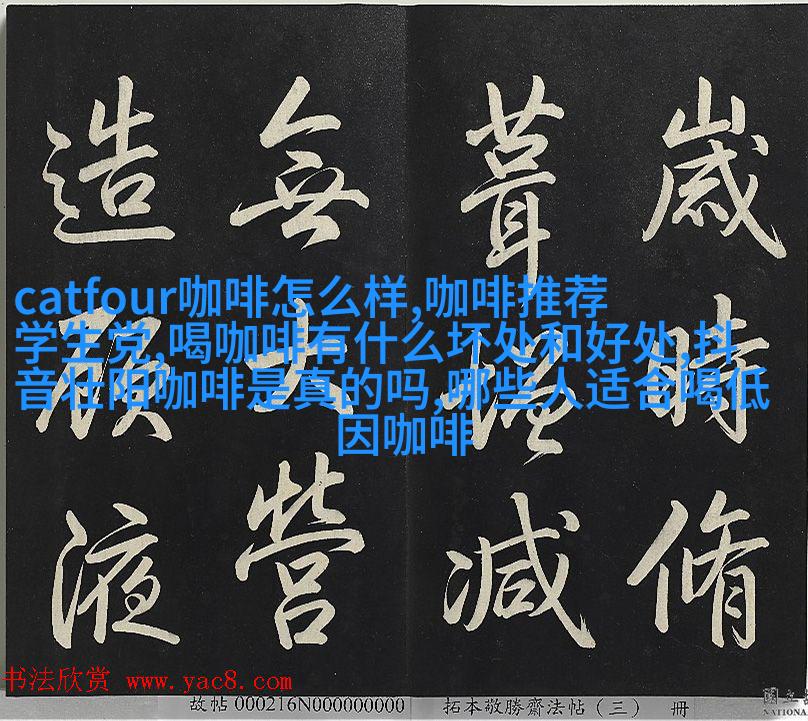 歲時脩
葺增減
無大營
造顧液
catfour咖啡怎么样,咖啡推荐
学生党,喝咖啡有什么坏处和好处,抖
音壮阳咖啡是真的吗,哪些人适合喝低
因咖啡
书法欣赏 www.yac8.com
故帖 000216N000000000 拓本敬勝齋法帖（三） 冊
國立
NATIONA